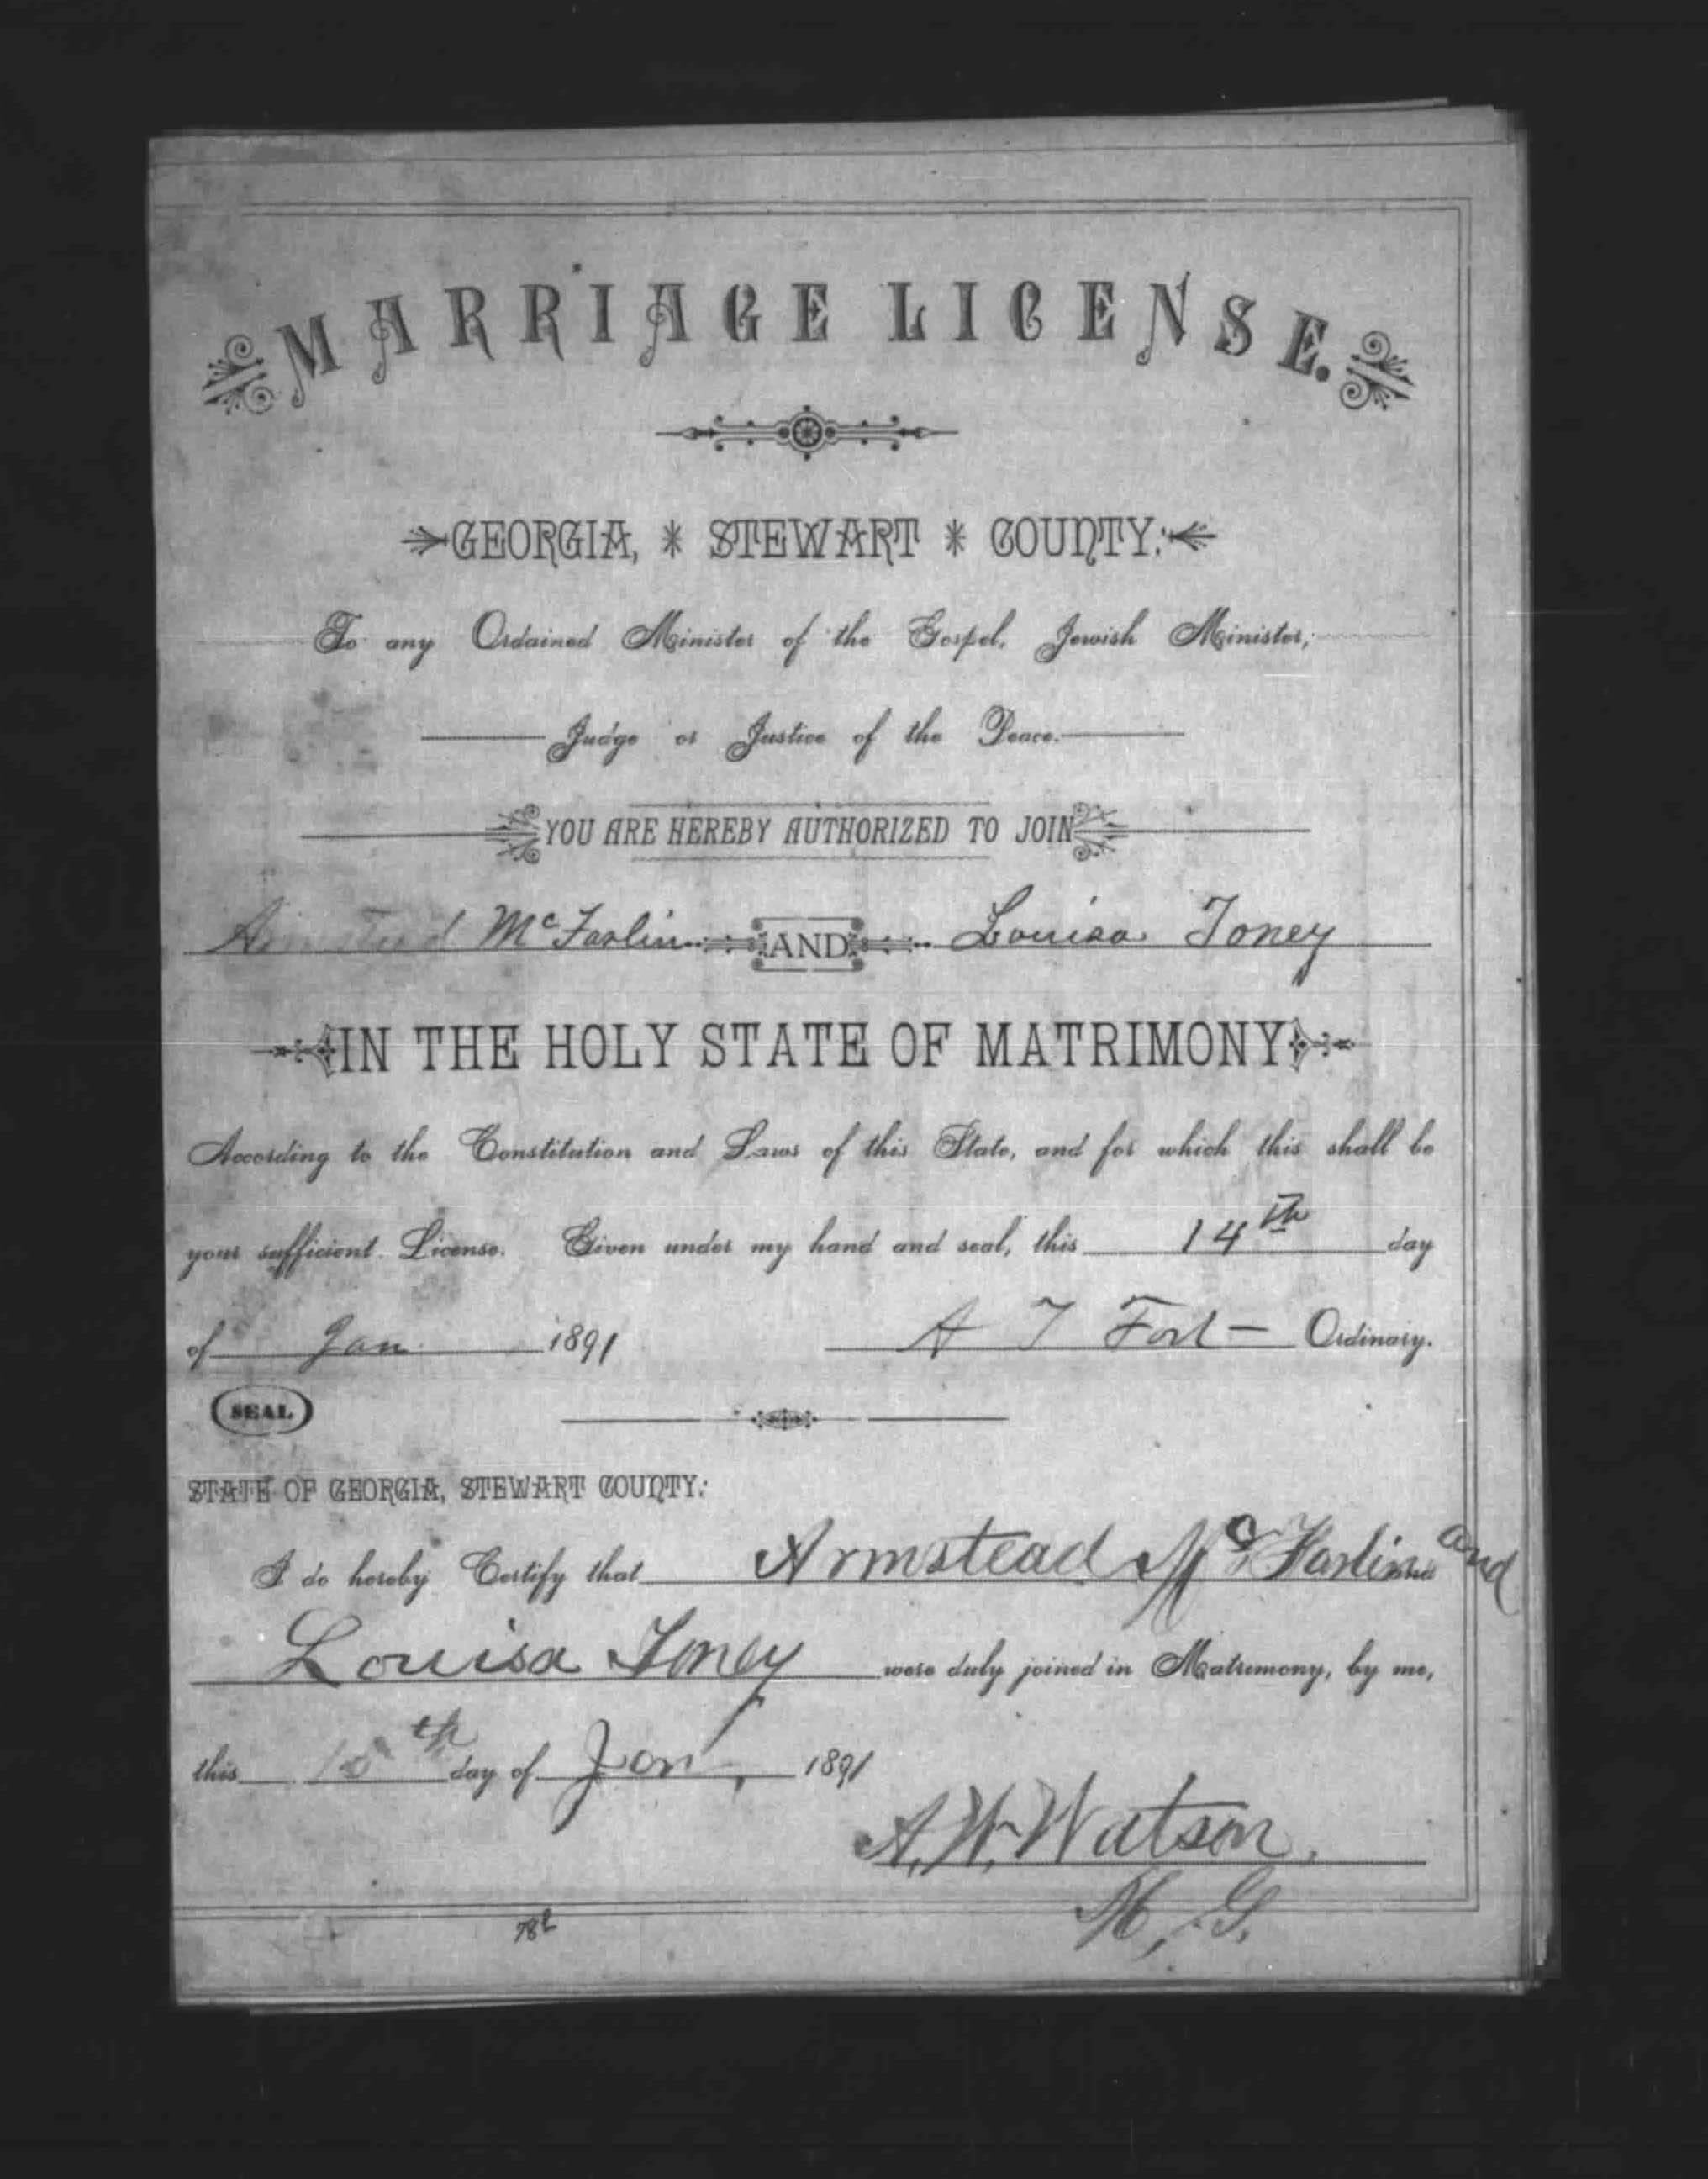 MARRIAGE LICENSE.
GEORGIA, * STEWART * COUNTY:
To any Ordained Minister of the Gospel, Jewish Minister,
Judge or Justice of the Peace.
YOU ARE HEREBY AUTHORIZED TO JOIN
Armstead McFarlin AND Louisa Toney
IN THE HOLY STATE OF MATRIMONY
According to the Constitution and Laws of this State, and for which this shall be
your sufficient License. Given under my hand and seal, this 14th day
of Jan 1891 A T Fort Ordinary.
SEAL
STATE OF GEORGIA, STEWART COUNTY:
I do hereby Certify that Armstead McFarlin and and
Louisa Toney were duly joined in Matrimony, by me,
this day of Jan, 1891
A. W. Watson,
M, G.